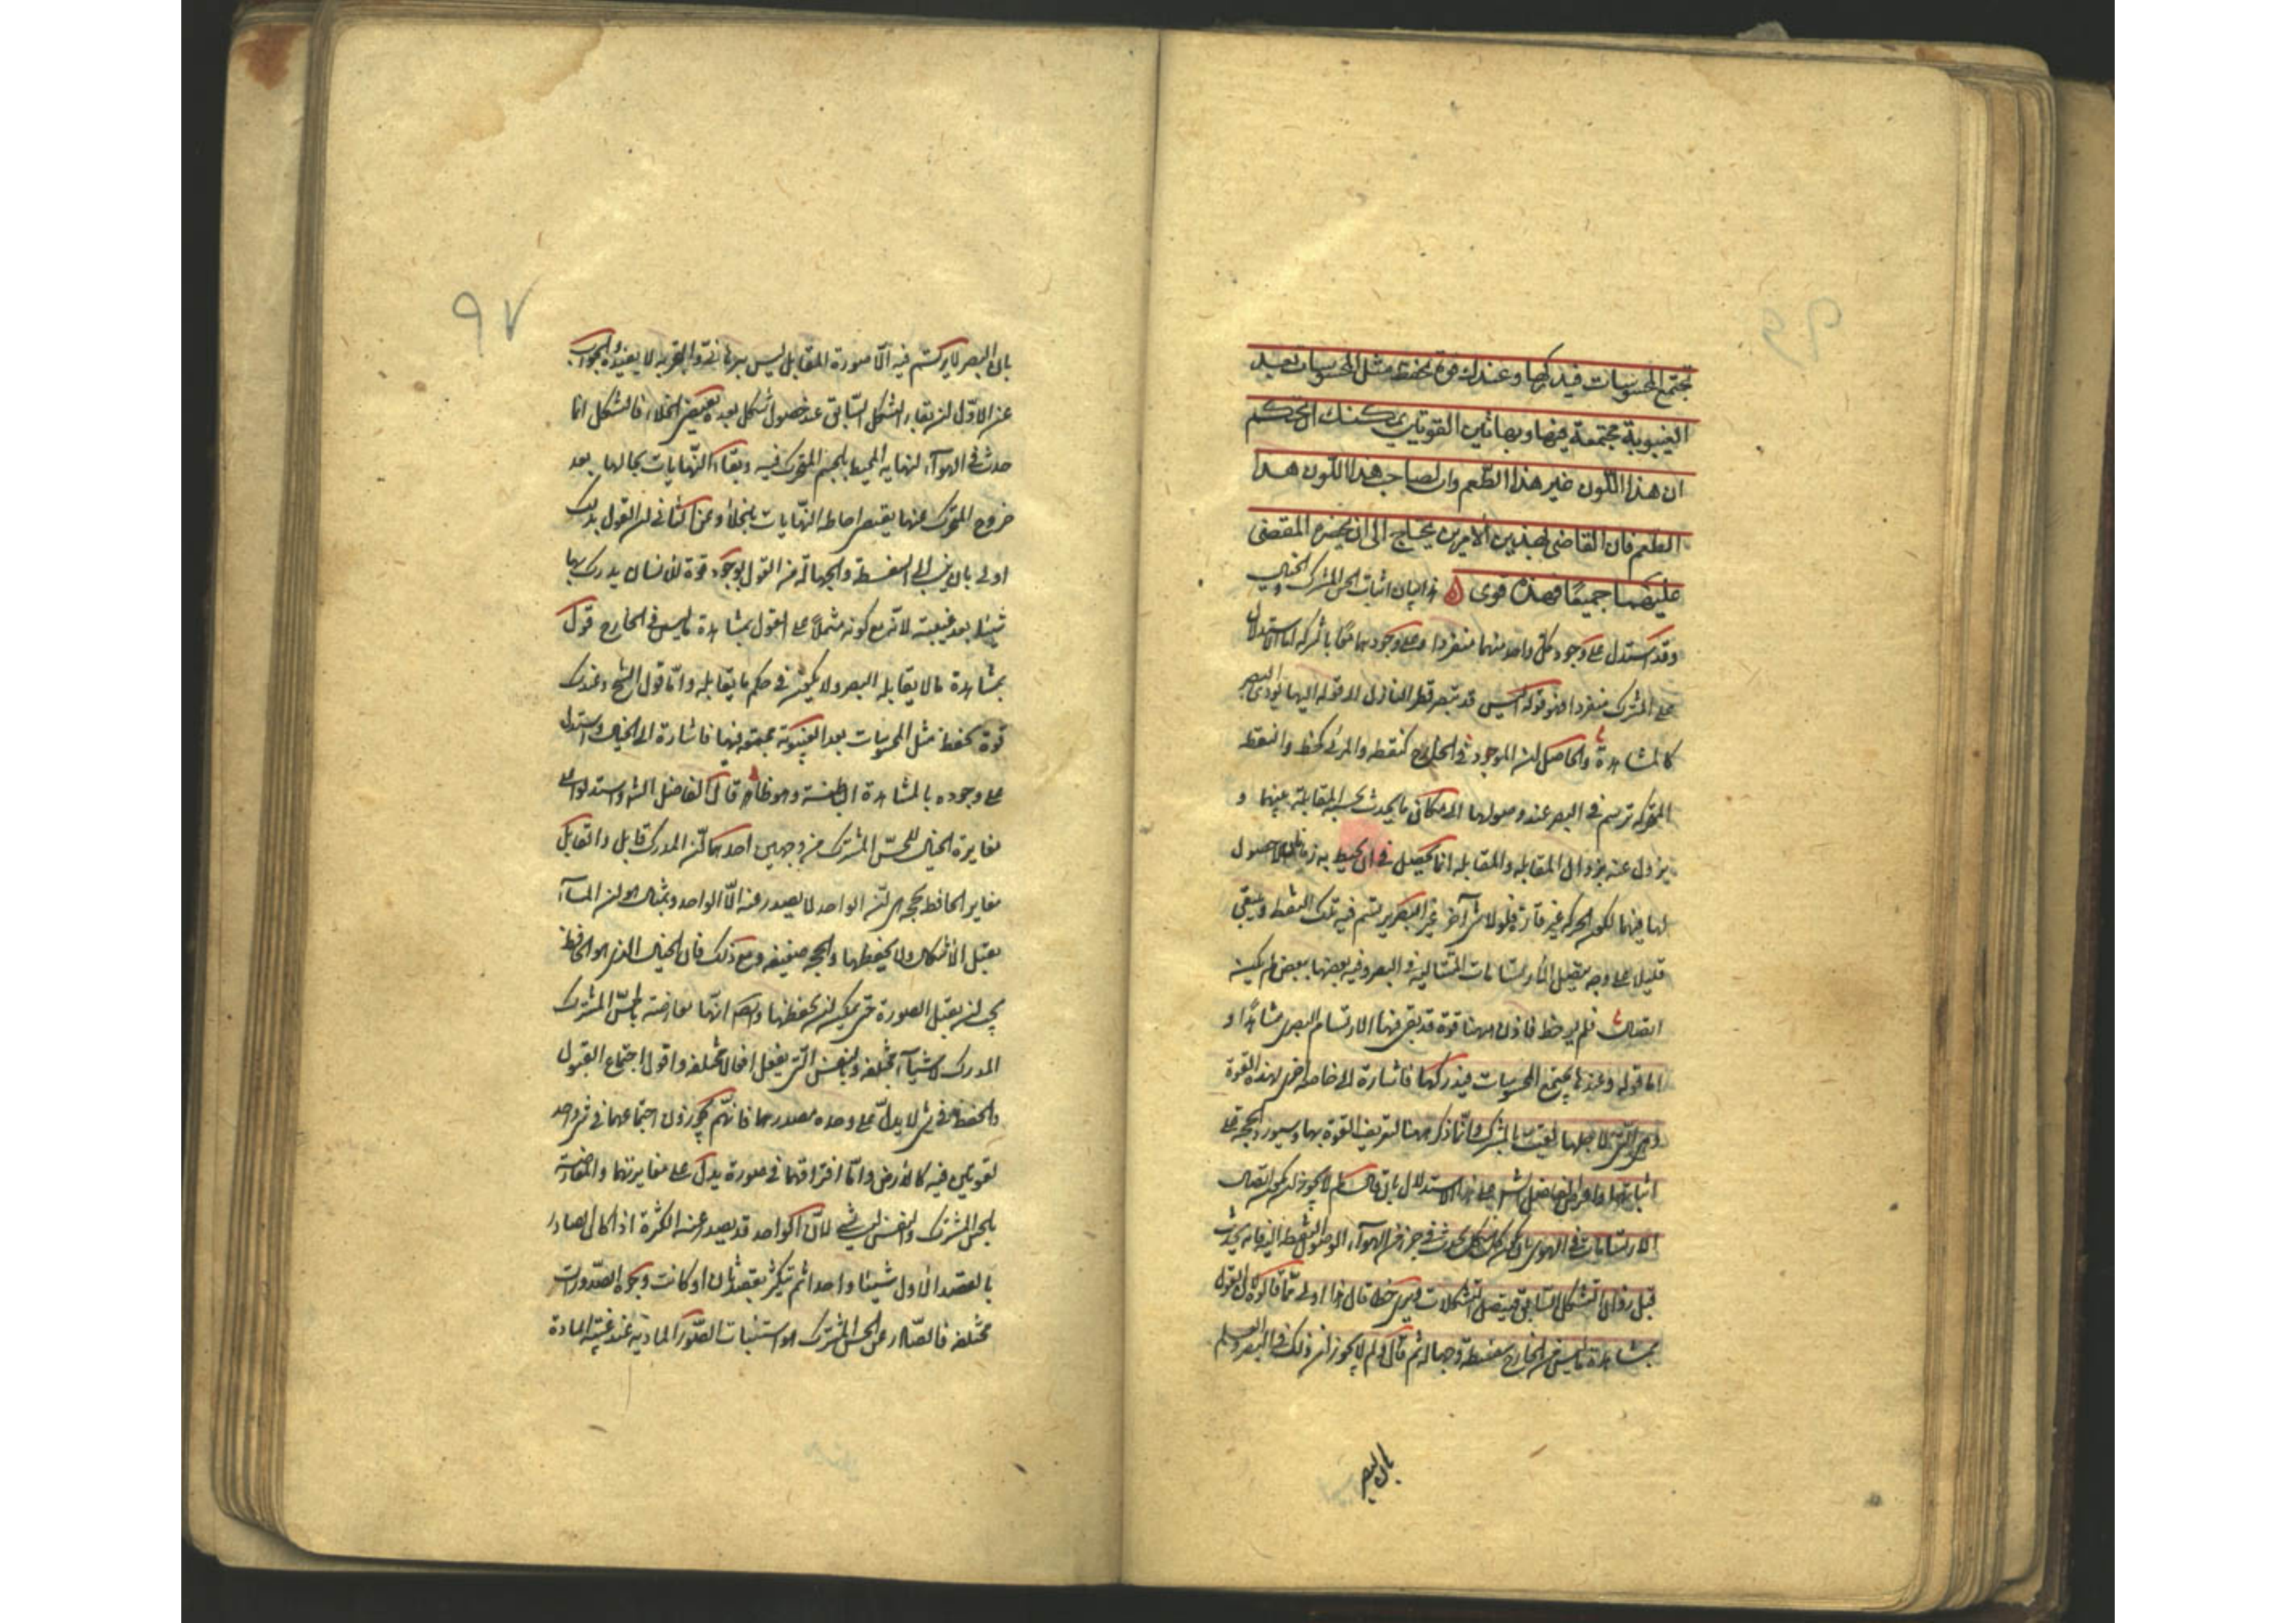 تجتمع المحسوسات فيدركها وعندك قوة تحفظ مثل المحسوسات بعد
الغيبوبة مجتمعة فيها وبهاتين القوتين يمكنك ان تحكم
ان هذا اللون غير هذا الطعم وان لصاحب هذا اللون هذا
الطعم فان القاضي بهذين الامرين يحتاج الى ان يحضره المقضي
عليهما جميعًا فهذه قوى هذا بيان اثبات الحس المشترك والخيال
وقد استدل على وجود كل واحد منهما منفردا وعلى وجودهما معًا بالشركة اما الاستدلال
على المشترك منفردا فهو قوله اليس قد تبصر قطر النازل الى قوله اليها يؤدي البصر
كالمشاهدة والحاصل ان الموجود في الخارج كنقطة والمرئي كخط والنقطة
المتحركة ترتسم في البصر عند وصولها الى مكان ما يحدث بحسبه المقابلة بينهما و
يزول عنه بزوال المقابلة والمقابلة انما تحصل في ان يحيط به زمانان لا حصول
لها فيهما لكون الحركة غير قارة فلولا شئ آخر غير البصر يرتسم فيه تلك النقطة وتبقى
قليلا على وجه يتصل الارتسامات المتتالية في البصر وفيه بعضها ببعض لم يكن
اتصال فلم ير خط فاذن ههنا قوة قد بقى فيها الارتسام البصرى مشاهدًا و
اما قوله وعندها يجتمع المحسوسات فيدركها فاشارة الى خاصة اخرى لهذه القوة
وهى التى لاجلها لقبت بالمشترك وانما ذكره ههنا لتعريف القوة بها وسيورد الحجة على
اثباتها واعترض الفاضل الش على هذا الاستدلال بان قال لم لا يجوز ان يكون اتصال
الارتسامات في الهوى بان يكون كل شكل يحدث في جزء من الهوآء الوصول النقطة اليه فانه يحدث
قبل زوال التشكل السابق فيتصل التشكلات فيرى خط قال وهذا اولى مما قالوه لان القول
بمشاهدة ما ليس في الخارج سفسطة وجهالة ثم قال ولم لا يجوز ان ذلك في البصر والعلم
بان البصر
٩٧
بان البصر لا يرتسم فيه الا صورة المقابل ليس ببرهانى والتجربة لا يفيده والجواب
عن الاول ان بقاء الشكل السابق عند حصول شكل بعده يقتضى الخلاء فالشكل انما
حدث في الهوآء لنهاية المحيط بالجسم المتحرك فيه وبقاء النهايات بحالها بعد
خروج المتحرك عنها يقتضى احاطة النهايات بالخلاء وعن الثانى ان القول بذلك
اولى بان ينسب الى السفسطة والجهالة من القول بوجود قوة للانسان يدرك بها
شيئا بعد غيبته لانه مع كونه مشتملًا على القول بمشاهدة ما ليس في الخارج قول
بمشاهدة ما لا يقابله البصر ولا يكون في حكم ما يقابله واما قول الشيخ وعندك
قوة تحفظ مثل المحسوسات بعد الغيبوبة مجتمعة فيها فاشارة الى الخيال واستدل
على وجوده بالمشاهدة الباطنة وهو ظاهر قال الفاضل الش واستدلوا على
مغايرة الخيال للحس المشترك من وجهين احدهما ان المدرك قابل والقابل
مغاير الحافظ بحجة هى ان الواحد لا يصدر عنه الا الواحد وبمثال هو ان المآء
يقبل الاشكال ولا يحفظها والحجة ضعيفة ومع ذلك فان الخيال الذى هو الحافظ
يجب ان يقبل الصورة حتى يمكن ان يحفظها وايضا انها معارضة بالحس المشترك
المدرك لاشيآء مختلفة وبالنفس التى يفعل افعالا مختلفة واقول اجتماع القبول
والحفظ في شئ لا يدل على وحدة مصدرهما فانهم يجوزون اجتماعهما في شئ واحد
لقوتين فيه كالارض واما افتراقهما في صورة يدل على مغايرتهما والمعارضة
بالحس المشترك والنفس ليس بشئ لان الواحد قد يصدر عنه الكثرة اذا كان الصادر
بالقصد الاول شيئا واحدا ثم يتكثر بقصد ثان او كانت وجوه الصدورات
مختلفة فالصادر عن الحس المشترك هو استثبات الصور المادية عند غيبة المادة